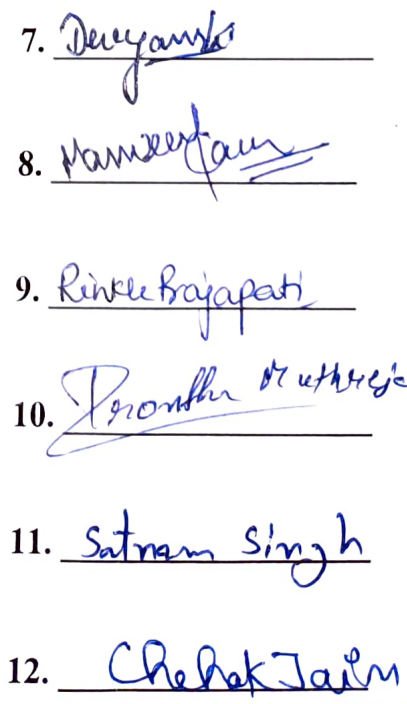 7. Devyanshi
8. Manmeet Kaur
9. Rinkee Prajapati
10. Pronthu Muthreja
11. Satnam Singh
12. Chehak Jain